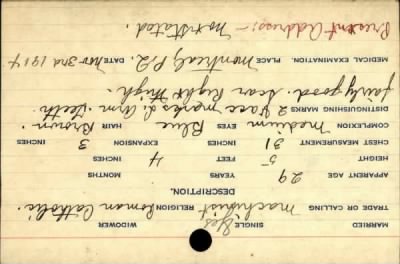 MARRIED SINGLE Yes WIDOWER
TRADE OR CALLING Machinist RELIGION Roman Catholic.
DESCRIPTION.
APPARENT AGE 29 YEARS MONTHS
HEIGHT 5 FEET 4 INCHES
CHEST MEASUREMENT 31 EXPANSION 3 INCHES
COMPLEXION Medium EYES Blue HAIR Brown.
DISTINGUISHING MARKS 2 vacc marks L. Arm. Teeth
fairly good. Scar Right Thigh.
MEDICAL EXAMINATION. PLACE Montreal, P.Q. DATE Nov 3rd 1914
Present Address:- Not stated.